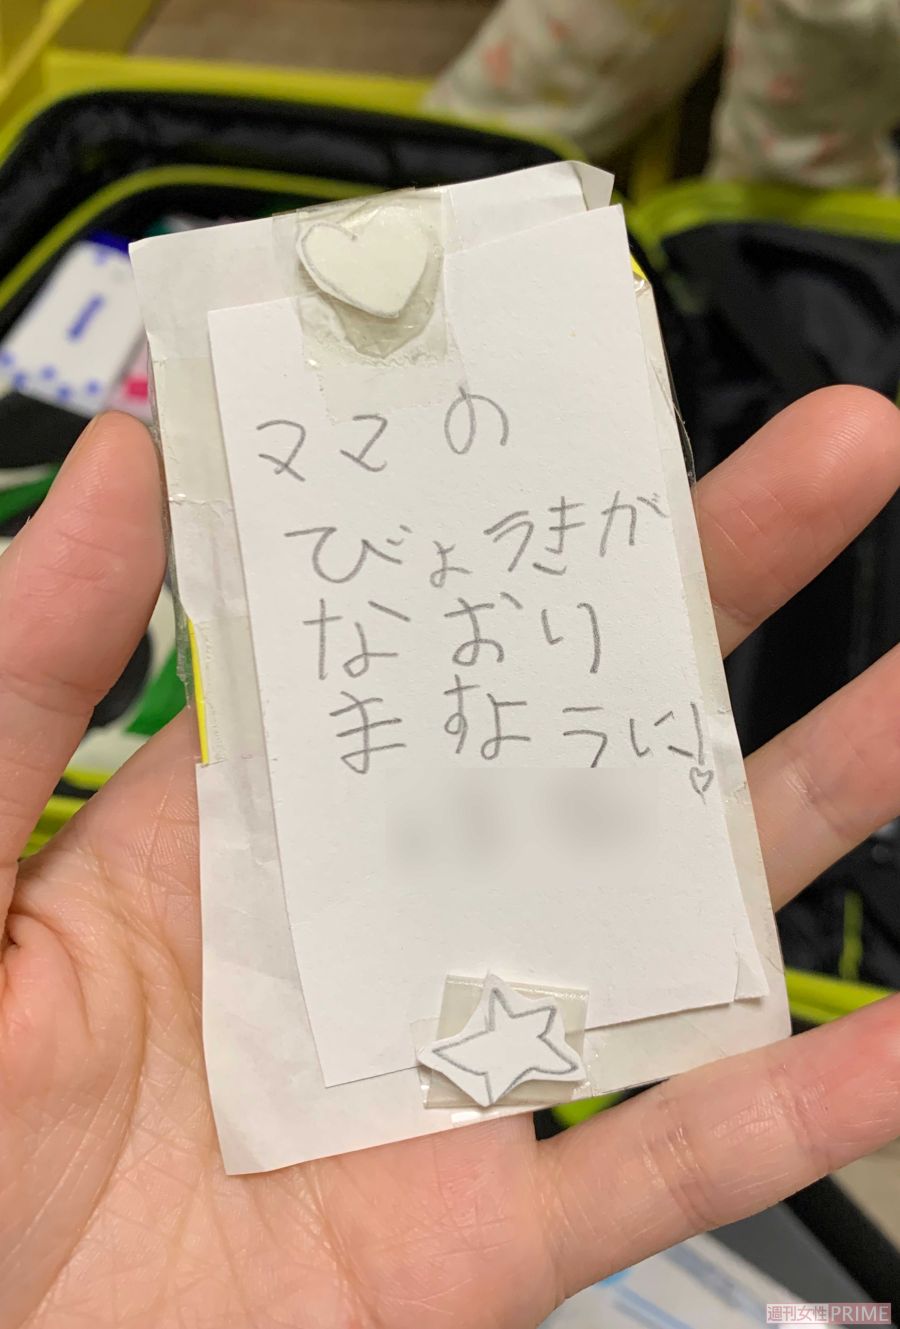 ママの
びょうきが
なおり
ますように!
週刊女性PRIME